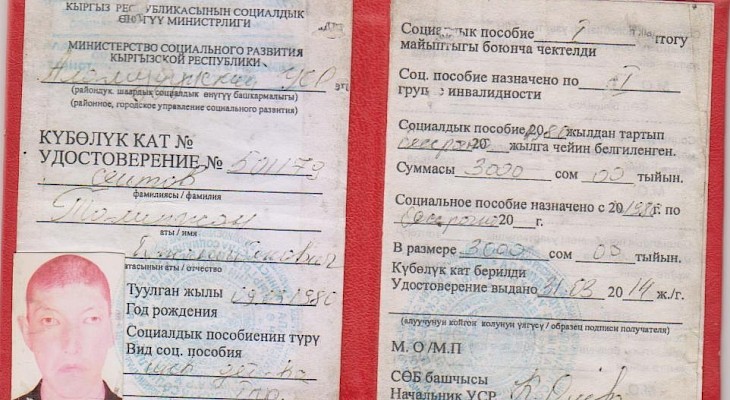 КЫРГЫЗ РЕСПУБЛИКАСЫНЫН СОЦИАЛДЫК
ӨНҮГҮҮ МИНИСТРЛИГИ
МИНИСТЕРСТВО СОЦИАЛЬНОГО РАЗВИТИЯ
КЫРГЫЗСКОЙ РЕСПУБЛИКИ
УСР
(райондук, шаардык социалдык өнүгүү башкармалыгы)
(районное, городское управление социального развития)
КҮБӨЛҮК КАТ №
УДОСТОВЕРЕНИЕ № 501179
Сеитов
фамилиясы / фамилия
аты / имя
атасынын аты / отчество
Туулган жылы 1980
Год рождения
Социалдык пособиенин түрү
Вид соц. пособия
Социалдык пособие I топтогу
майыптыгы боюнча чектелди
Соц. пособие назначено по I
группе инвалидности
Социалдык пособие 20 жылдан тартып
20 жылга чейин белгиленген.
Суммасы 3000 сом 00 тыйын.
Социальное пособие назначено с 20 1980 г. по
бессрочно 20 г.
В размере 3000 сом 00 тыйын.
Күбөлүк кат берилди
Удостоверение выдано 31.03 2014 ж./г.
(алуучунун койгон колунун үлгүсү / образец подписи получателя)
М. О /М.П
СӨБ башчысы
Начальник УСР